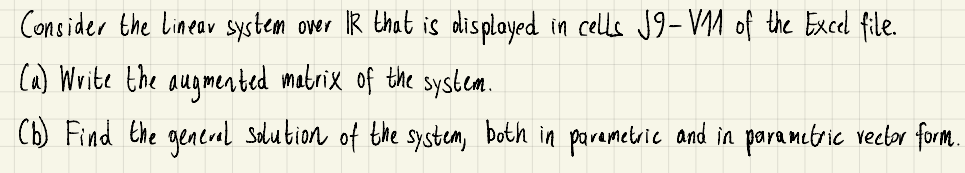 Consider the linear system over ℝ that is displayed in cells J9-V11 of the Excel file.
(a) Write the augmented matrix of the system.
(b) Find the general solution of the system, both in parametric and in parametric vector form.